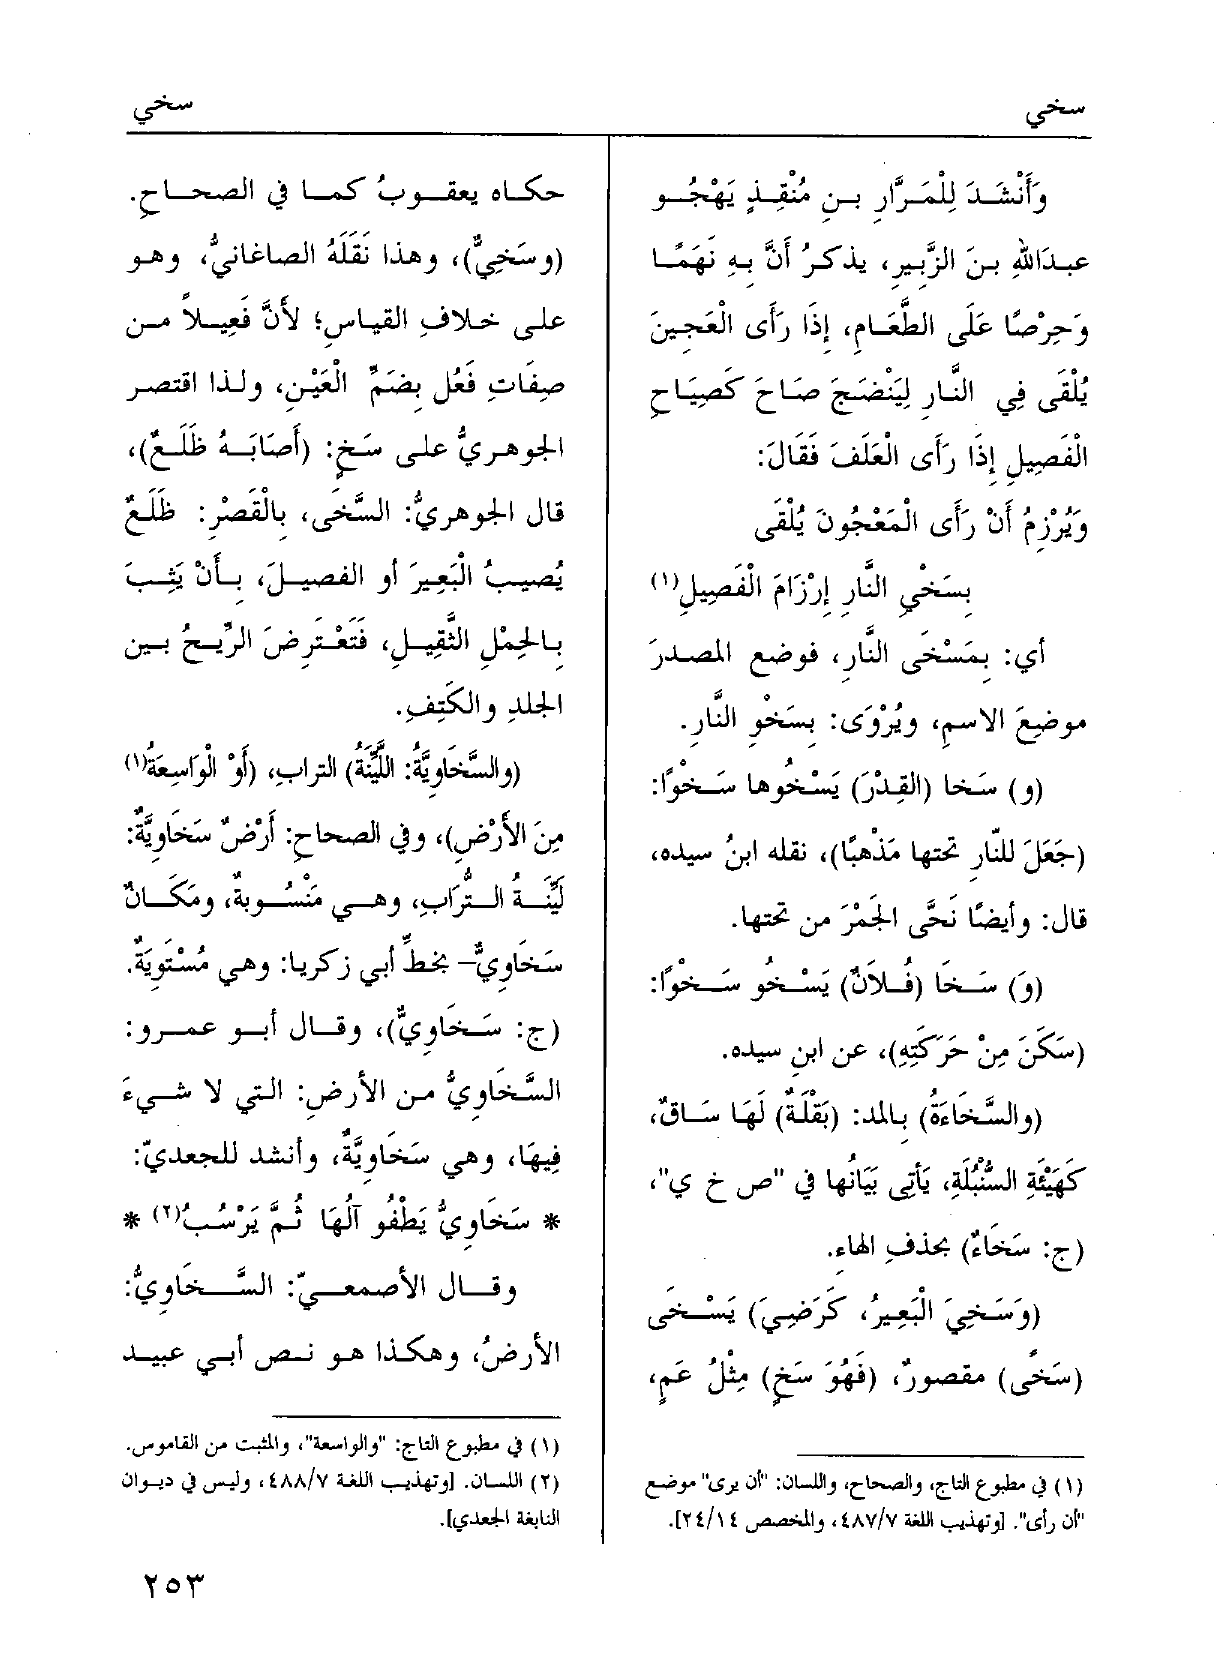 سخي
سخي
وَأَنْشَدَ لِلْمَرَّارِ بنِ مُنْقِذٍ يَهْجُو
عبدَاللهِ بنَ الزُّبيرِ، يذكرُ أَنَّ بِهِ نَهَمًا
وَحِرْصًا عَلَى الطَّعَامِ، إِذَا رَأَى الْعَجِينَ
يُلْقَى فِي النَّارِ لِيَنْضَجَ صَاحَ كَصِيَاحِ
الْفَصِيلِ إِذَا رَأَى الْعَلَفَ فَقَالَ:
وَيُرْزِمُ أَنْ رَأَى الْمَعْجُونَ يُلْقَى
بِسَخْيِ النَّارِ إِرْزَامَ الْفَصِيلِ(١)
أي: بِمَسْخَى النَّارِ، فوضع المصدرَ
موضعَ الاسمِ، ويُرْوَى: بِسَخْوِ النَّارِ.
(و) سَخا (القِدْرَ) يَسْخُوها سَخْوًا:
(جَعَلَ للنَّارِ تحتها مَذْهَبًا)، نقله ابنُ سيده،
قال: وأيضًا نَحَّى الجَمْرَ من تحتها.
(وَ) سَخَا (فُلاَنٌ) يَسْخُو سَخْوًا:
(سَكَنَ مِنْ حَرَكَتِهِ)، عن ابنِ سيده.
(والسَّخَاءَةُ) بالمد: (بَقْلَةٌ) لَهَا سَاقٌ،
كَهَيْئَةِ السُّنْبُلَةِ، يَأتِى بَيَانُها في "ص خ ي"،
(ج: سَخَاءٌ) بحذفِ الهاءِ.
(وَسَخِيَ الْبَعِيرُ، كَرَضِيَ) يَسْخَى
(سَخًى) مقصورٌ، (فَهُوَ سَخٍ) مِثْلُ عَمٍ،
(١) في مطبوع التاج، والصحاح، واللسان: "أن يرى" موضع
"أن رأى". [وتهذيب اللغة ٤٨٧/٧، والمخصص ٢٤/١٤].
حكاه يعقوبُ كما في الصحاحِ.
(وسَخِيٌّ)، وهذا نَقَلَهُ الصاغانيُّ، وهو
على خلافِ القياسِ؛ لأنَّ فَعِيلاً من
صِفَاتِ فَعُل بِضَمِّ الْعَيْنِ، ولذا اقتصر
الجوهريُّ على سَخٍ: (أَصَابَهُ ظَلَعٌ)،
قال الجوهريُّ: السَّخَى، بِالْقَصْرِ: ظَلَعٌ
يُصيبُ الْبَعِيرَ أو الفصيلَ، بأنْ يَثِبَ
بِالحِمْلِ الثَّقِيلِ، فَتَعْتَرِضَ الرِّيحُ بين
الجلدِ والكَتِفِ.
(والسَّخَاوِيَّةُ: اللَّيِّنَةُ) الترابِ، (أَوْ الْوَاسِعَةُ(١)
مِنَ الأَرْضِ)، وفي الصحاحِ: أَرْضٌ سَخَاوِيَّةٌ:
لَيِّنَةُ التُّرَابِ، وهي مَنْسُوبةٌ، ومَكَانٌ
سَخَاوِيٌّ – بخطِّ أبي زكريا: وهي مُسْتَوِيَةٌ.
(ج: سَخَاوِيُّ)، وقال أبو عمرو:
السَّخَاوِيُّ من الأرضِ: التي لا شيءَ
فِيهَا، وهي سَخَاوِيَّةٌ، وأنشد للجعديّ:
* سَخَاوِيُّ يَطْفُو آلُهَا ثُمَّ يَرْسُبُ(٢) *
وقال الأصمعيّ: السَّخَاوِيُّ:
الأرضُ، وهكذا هو نص أبي عبيد
(١) في مطبوع التاج: "والواسعة"، والمثبت من القاموس.
(٢) اللسان. [وتهذيب اللغة ٤٨٨/٧، وليس في ديوان
النابغة الجعدي].
٢٥٣